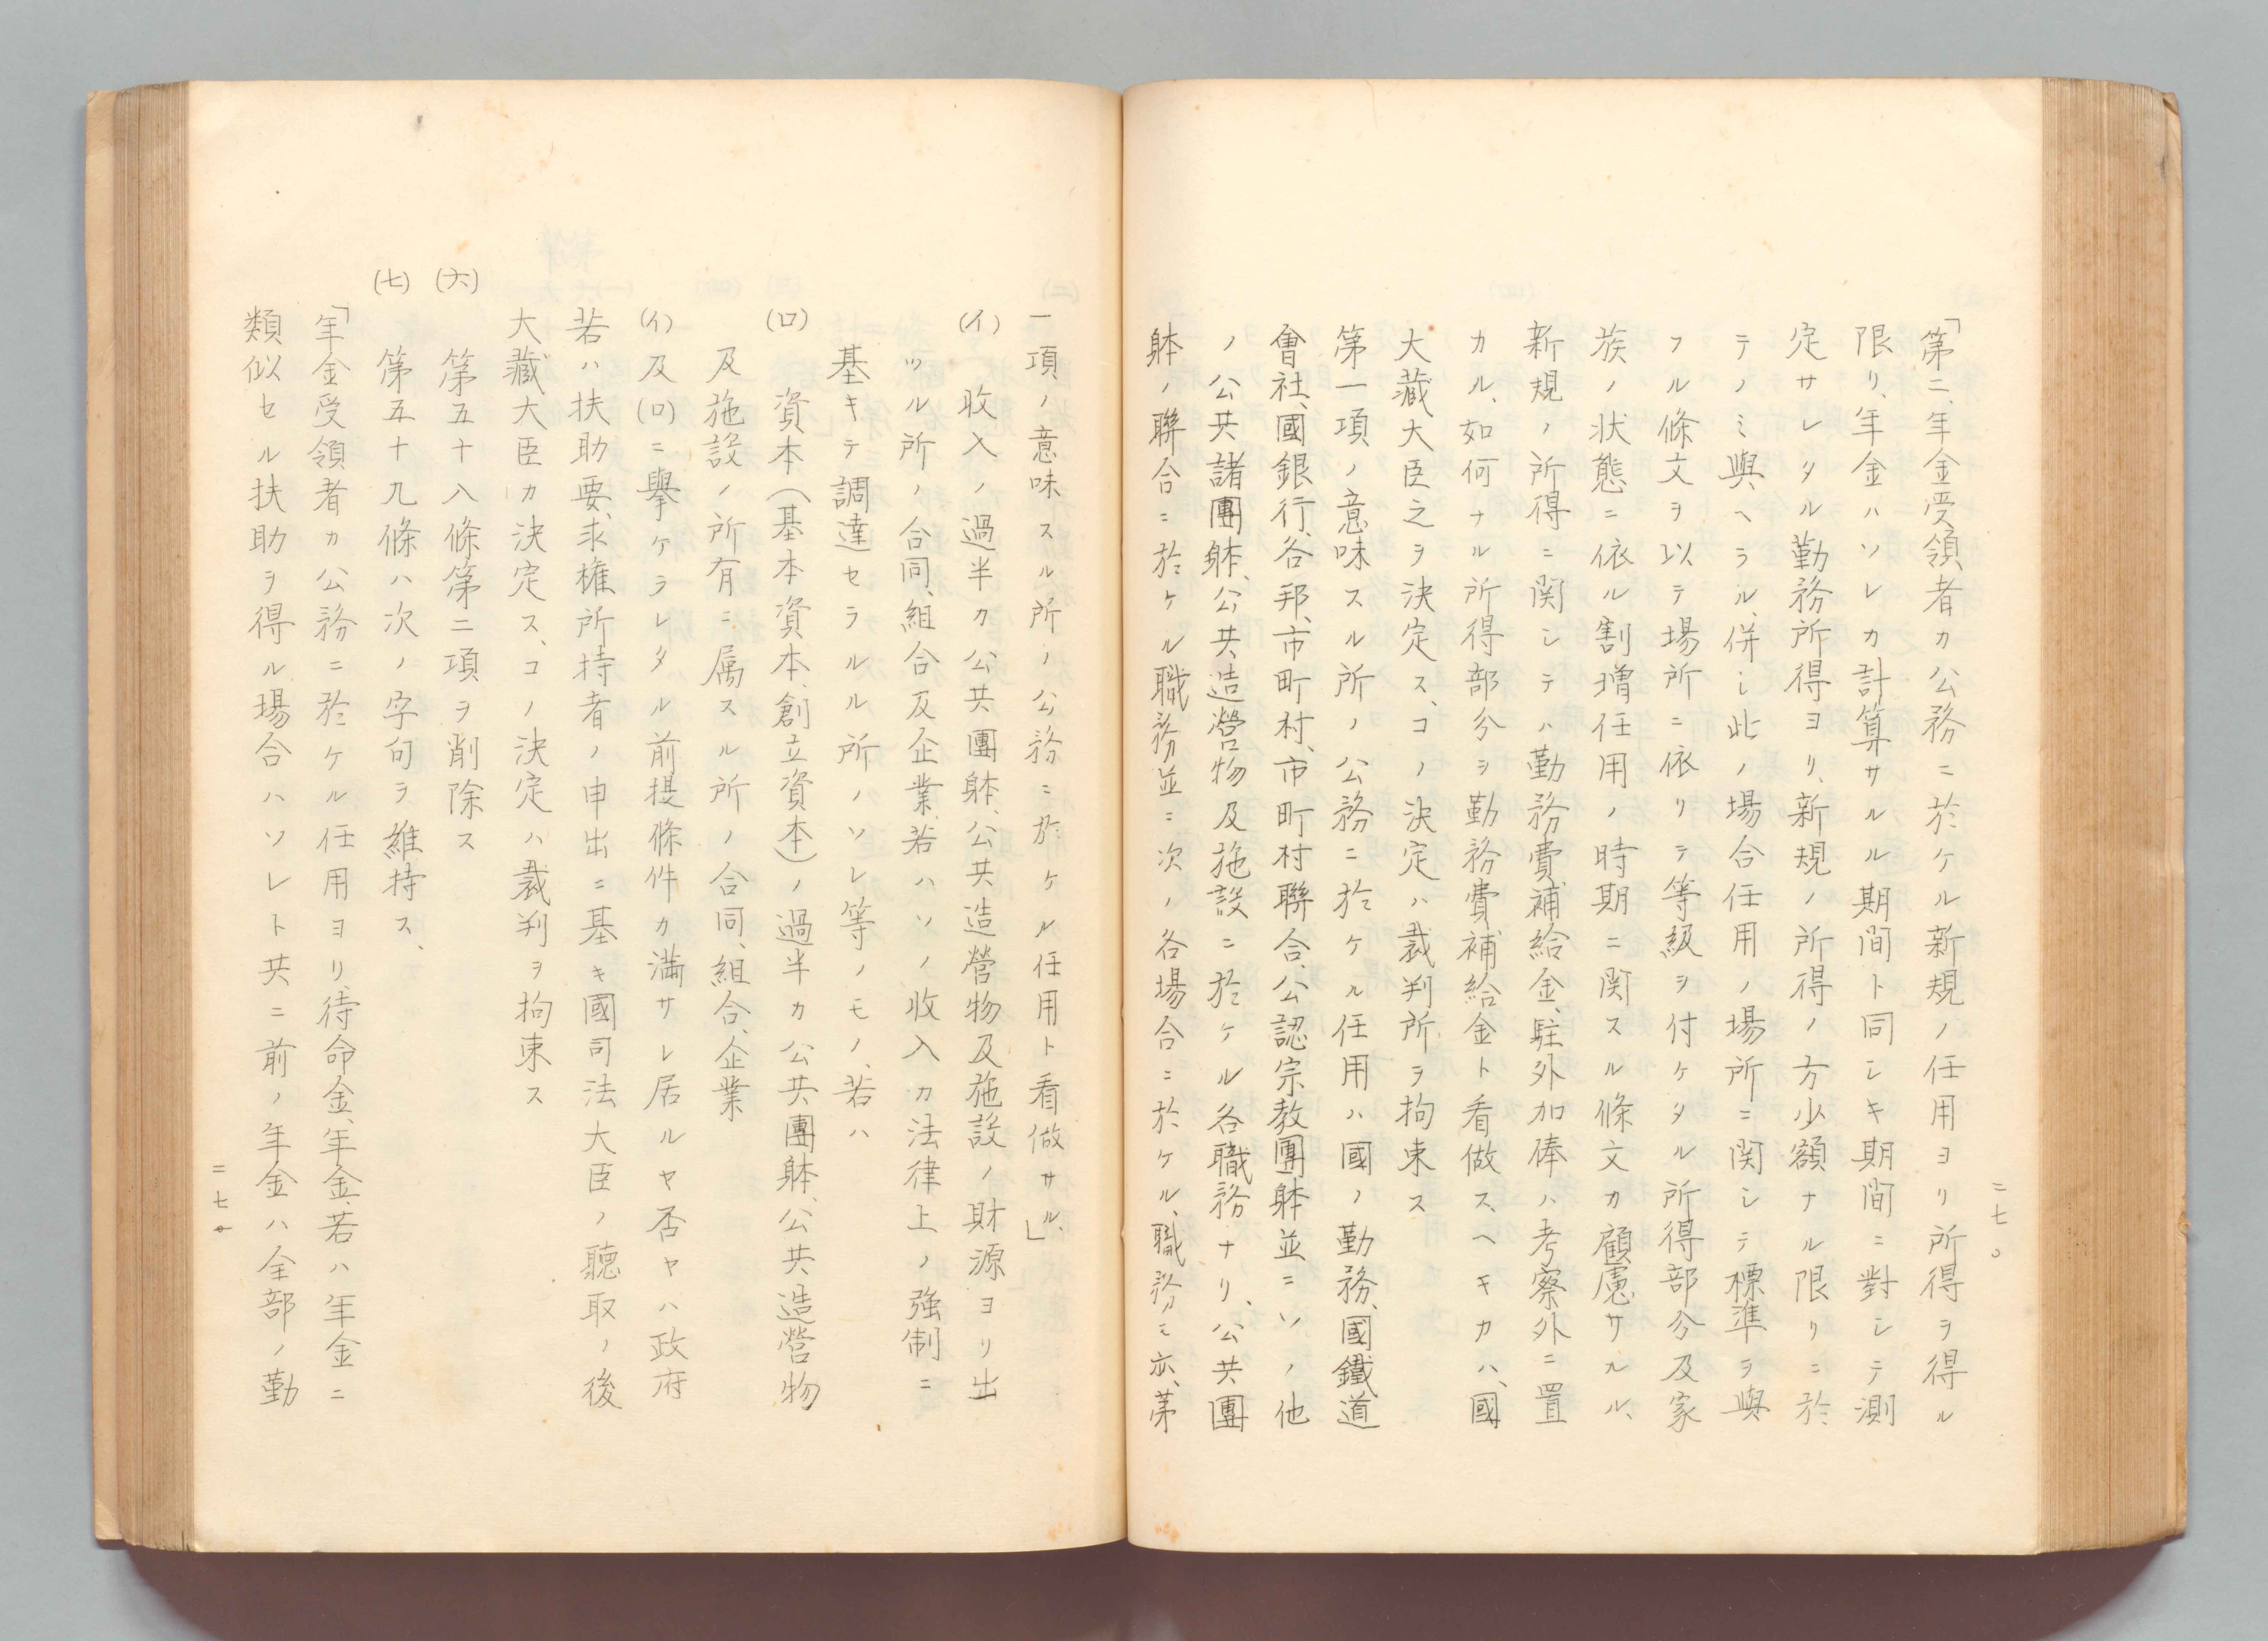 二七〇
「第二、年金受領者カ公務ニ於ケル新規ノ任用ヨリ所得ヲ得ル
限リ、年金ハソレカ計算サルル期間ト同シキ期間ニ對シテ測
定サレタル勤務所得ヨリ、新規ノ所得ノ方少額ナル限リニ於
テノミ與ヘラル、併シ此ノ場合任用ノ場所ニ関シテ標準ヲ與
フル條文ヲ以テ場所ニ依リテ等級ヲ付ケタル所得部分及家
族ノ状態ニ依ル割増任用ノ時期ニ関スル條文カ顧慮サルル、
新規ノ所得ニ関シテハ勤務費補給金、駐外加俸ハ考察外ニ置
カル、如何ナル所得部分ヲ勤務費補給金ト看做スヘキカハ、國
大藏大臣之ヲ決定ス、コノ決定ハ裁判所ヲ拘束ス
第一項ノ意味スル所ノ公務ニ於ケル任用ハ國ノ勤務、國鐵道
會社、國銀行、各邦、市町村、市町村聯合、公認宗教團躰並ニソノ他
ノ公共諸團躰、公共造營物及施設ニ於ケル各職務ナリ、公共團
躰ノ聯合ニ於ケル職務並ニ次ノ各場合ニ於ケル、職務モ亦、第
一項ノ意味スル所ノ公務ニ於ケル任用ト看做サル、」
(イ) 收入ノ過半カ公共團躰、公共造營物及施設ノ財源ヨリ出
ツル所ノ合同、組合及企業、若ハソノ收入カ法律上ノ強制ニ
基キテ調達セラルル所ノソレ等ノモノ、若ハ
(ロ) 資本(基本資本、創立資本)ノ過半カ公共團躰、公共造營物
及施設ノ所有ニ属スル所ノ合同、組合、企業
(イ)及(ロ)ニ擧ケラレタル前提條件カ満サレ居ルヤ否ヤハ政府
若ハ扶助要求權所持者ノ申出ニ基キ國司法大臣ノ聽取ノ後
大藏大臣カ決定ス、コノ決定ハ裁判ヲ拘束ス
(六) 第五十八條第二項ヲ削除ス
(七) 第五十九條ハ次ノ字句ヲ維持ス、
「年金受領者カ公務ニ於ケル任用ヨリ、待命金、年金、若ハ年金ニ
類似セル扶助ヲ得ル場合ハソレト共ニ前ノ年金ハ全部ノ勤
二七